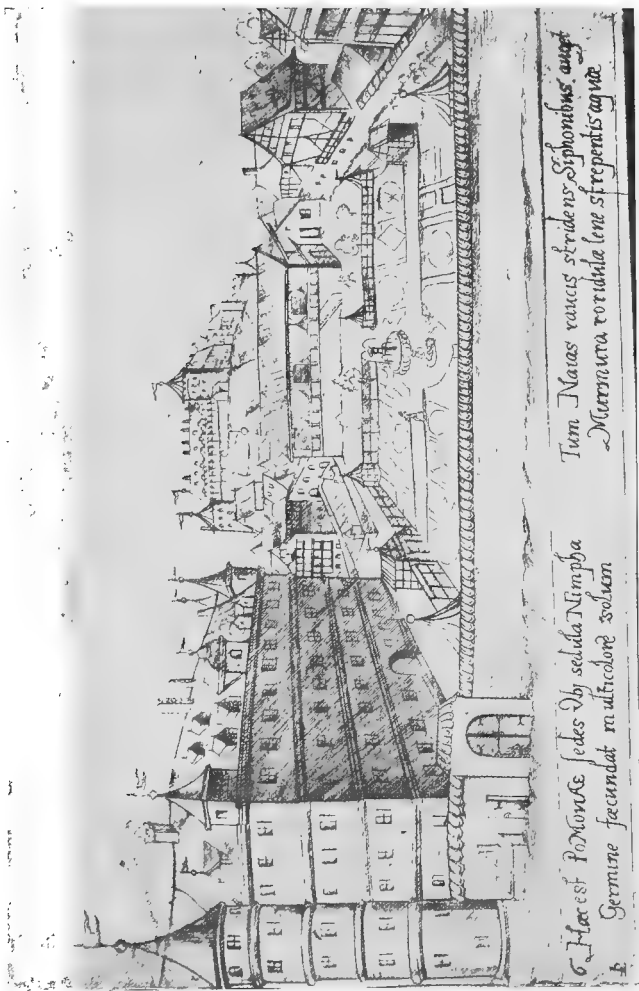 6 Hæc est POMONÆ sedes Vbj sedula Nimpha
Germine fæcundat multicolore solum
Tum Naias raucis stridens Siphonibus auget
Murmura roridula lene strepentis aquæ